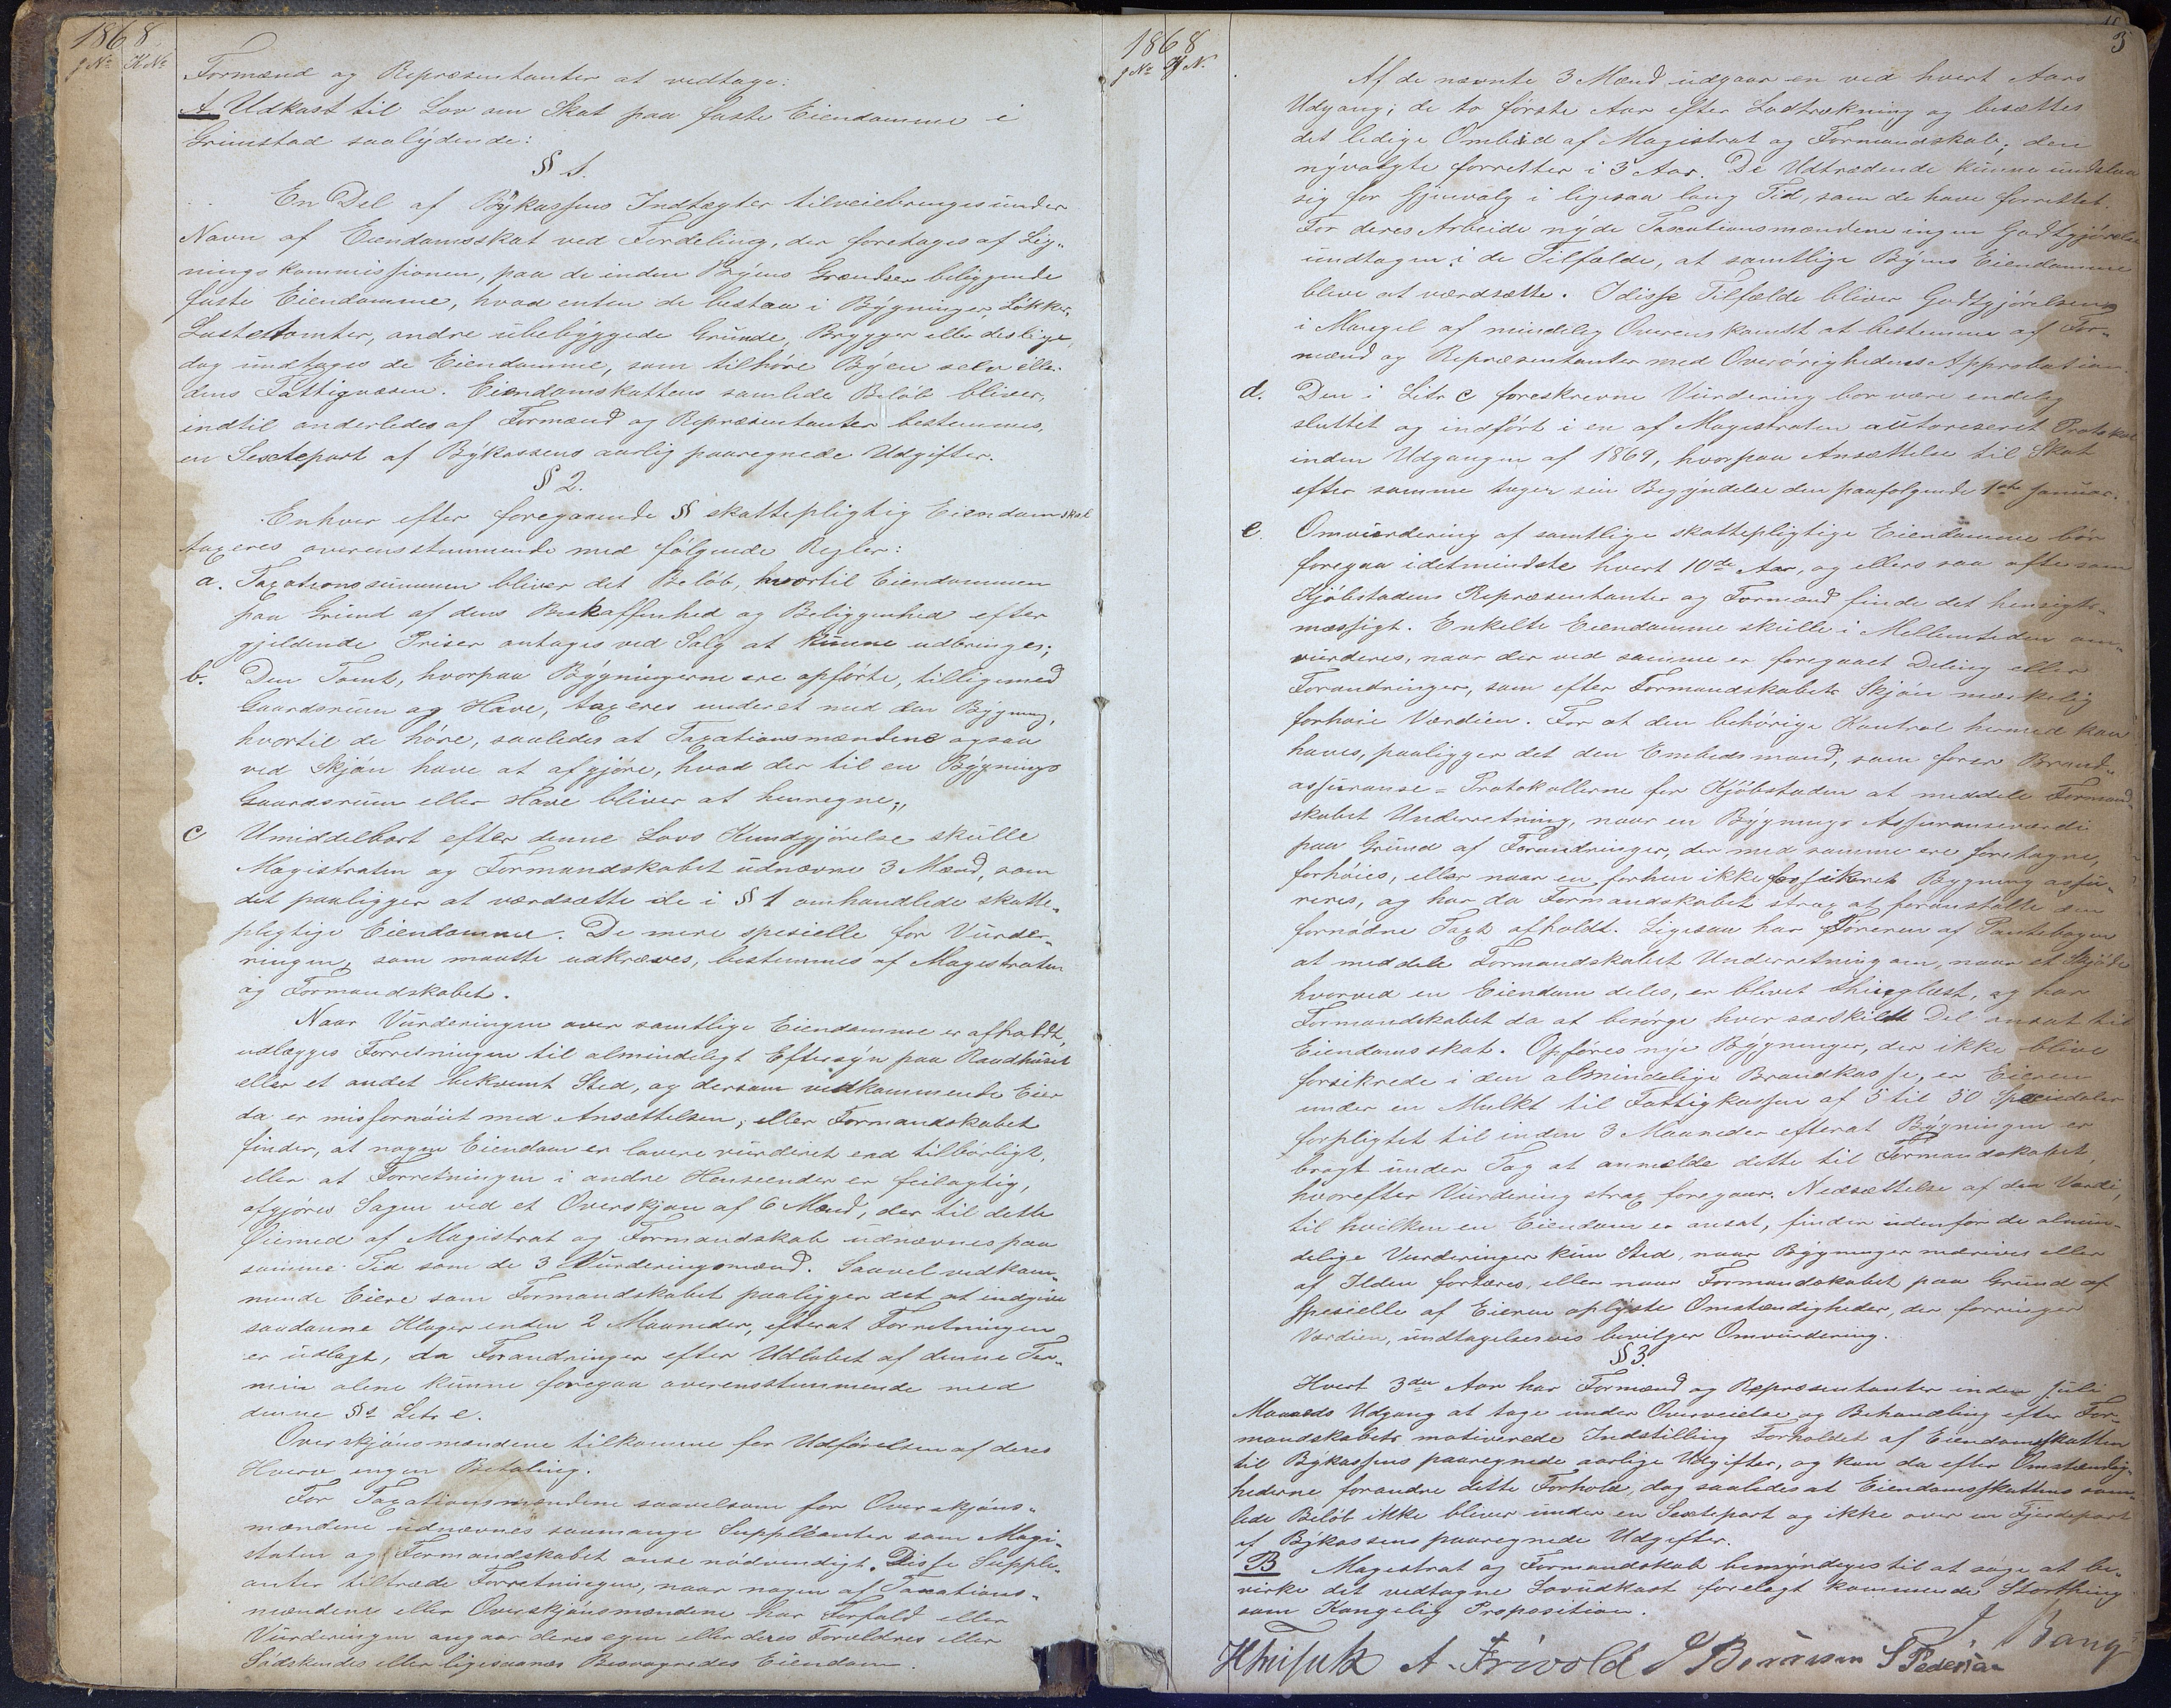 1868.
J No K No
Formænd og Repræsentanter at vedtage:
A. Udkast til Lov om Skat paa faste Eiendomme i
Grimstad saalydende:
§ 1.
En Del af Bykassens Indtægter tilveiebringes under
Navn af Eiendomsskat ved Fordeling, der foretages af Lig-
ningskommissionen, paa de inden Byens Grændser beliggende
faste Eiendomme, hvad enten de bestaa i Bygninger, Løkker,
Lastetomter, andre ubebyggede Grunde, Brygger eller deslige,
dog undtages de Eiendomme, som tilhøre Byen selv eller
dens Fattigvæsen. Eiendomsskattens samlede Beløb bliver,
indtil anderledes af Formænd og Repræsentanter bestemmes,
en Sextepart af Bykassens aarlig paaregnede Udgifter.
§ 2.
Enhver efter foregaaende § skattepligtig Eiendom skal
taxeres overensstemmende med følgende Regler:
a. Taxationssummen bliver det Beløb, hvortil Eiendommen
paa Grund af dens Beskaffenhed og Beliggenhed efter
gjeldende Priser antages ved Salg at kunne udbringes;
b. Den Tomt, hvorpaa Bygningerne ere opførte, tilligemed
Gaardsrum og Have, taxeres under et med den Bygning,
hvortil de høre, saaledes at Taxationsmændene ogsaa
ved Skjøn have at afgjøre, hvad der til en Bygnings
Gaardsrum eller Have bliver at henregne;
c Umiddelbart efter denne Lovs Kundgjørelse skulle
Magistraten og Formandskabet udnævne 3 Mænd, som
det paaligger at værdsætte de i § 1 omhandlede skatte-
pligtige Eiendomme. De mere spesielle for Vurder-
ringen, som maatte udkræves, bestemmes af Magistraten
og Formandskabet.
Naar Vurderingen over samtlige Eiendomme er afholdt,
udlægges Forretningen til almindeligt Eftersyn paa Raadhuset
eller et andet bekvemt Sted, og dersom vedkommende Eier
da er misfornøiet med Ansættelsen, eller Formandskabet
finder, at nogen Eiendom er lavere vurderet end tilbørligt,
eller at Forretningen i andre Henseender er feilagtig,
afgjøres Sagen ved et Overskjøn af 6 Mænd, der til dette
Øiemed af Magistrat og Formandskab udnævnes paa
samme Tid som de 3 Vurderingsmænd. Saavel vedkom-
mende Eiere som Formandskabet paaligger det at indgive
saadanne Klager inden 2 Maaneder, efterat Forretningen
er udlagt, da Forandringer efter Udløbet af denne Ter-
min alene kunne foregaa overensstemmende med
denne §s Litr e.
Overskjønsmændene tilkomme for Udførelsen af deres
Hverv ingen Betaling.
For Taxationsmændene saavelsom for Overskjøns-
mændene udnævnes saamange Suppleanter som Magi-
straten og Formandskabet anse nødvendigt. Disse Supple-
anter tiltræde Forretningen, naar nogen af Taxations-
mændene eller Overskjønsmændene har Forfald eller
Vurderingen angaar deres egen eller deres Forældres eller
Sødskendes eller ligesaanær Besvogredes Eiendom
1868
J No K N.
3
Af de nævnte 3 Mænd udgaar en ved hvert Aars
Udgang; de to første Aar efter Lodtrækning og besættes
det ledige Ombud af Magistrat og Formandskab; den
nyvalgte forretter i 3 Aar. De Udtrædende kunne undslaa
sig for Gjenvalg i ligesaa lang Tid, som de have forrettet.
For deres Arbeide nyde Taxationsmændene ingen Godtgjørelse
undtagen i de Tilfælde, at samtlige Byens Eiendomme
blive at værdsætte. I disse Tilfælde bliver Godtgjørelsen
i Mangel af mindelig Overenskomst at bestemme af For-
mænd og Repræsentanter med Overøvrighedens Approbation.
d. Den i Litr c foreskrevne Vurdering bør være endelig
sluttet og indført i en af Magistraten autoriseret Protokol
inden Udgangen af 1869, hvorpaa Ansættelse til Skat
efter samme tager sin Begyndelse den paafølgende 1ste Januar.
e. Omvurdering af samtlige skattepligtige Eiendomme bør
foregaa idetmindste hvert 10de Aar, og ellers saa ofte som
Kjøbstadens Repræsentanter og Formænd finde det hensigts-
mæssigt. Enkelte Eiendomme skulle i Mellemtiden om-
vurderes, naar der ved samme er foregaaet Deling eller
Forandringer, som efter Formandskabets Skjøn mærkelig
forhøie Værdien. For at den behørige Kontrol hermed kan
haves, paaligger det den Embedsmand, som fører Brand-
assuranse-Protokollerne for Kjøbstaden at meddele Formand-
skabet Underretning, naar en Bygnings Assuranseværdi
paa Grund af Forandringer, der med samme ere foretagne,
forhøies, eller naar en forhen ikke forsikret Bygning assu-
reres, og har da Formandskabet strax at foranstalte den
fornødne Taxt afholdt. Ligesaa har Føreren af Pantebogen
at meddele Formandskabet Underretning om, naar et Skjøde
hvorved en Eiendom deles, er blivet thinglæst, og har
Formandskabet da at besørge hver særskildt Del ansat til
Eiendomsskat. Opføres nye Bygninger, der ikke blive
forsikrede i den almindelige Brandkasse, er Eieren
under en Mulkt til Fattigkassen af 5 til 50 Speciedaler
forpligtet til inden 3 Maaneder efterat Bygningen er
bragt under Tag at anmelde dette til Formandskabet,
hvorefter Vurdering strax foregaar. Nedsættelse af den Værdi,
til hvilken en Eiendom er ansat, finder udenfor de almin-
delige Vurderinger kun Sted, naar Bygninger nedrives eller
af Ilden fortæres, eller naar Formandskabet paa Grund af
spesielle af Eieren oplyste Omstændigheder, der forringer
Værdien, undtagelsesvis bevilger Omvurdering.
§ 3.
Hvert 3die Aar har Formænd og Repræsentanter inden Juli
Maaneds Udgang at tage under Overveielse og Behandling efter For-
mandskabets motiverede Indstilling Forholdet af Eiendomsskatten
til Bykassens paaregnede aarlige Udgifter, og kan da efter Omstændig-
hederne forandre dette Forhold, dog saaledes at Eiendomsskattens sam-
lede Beløb ikke bliver under en Sextepart og ikke over en Fjerdepart
af Bykassens paaregnede Udgifter.
B Magistrat og Formandskab bemyndiges til at søge at be-
virke det vedtagne Lovudkast forelagt kommende Storthing
som Kongelig Proposition.
J Bang
A. Frivold S Pedersen